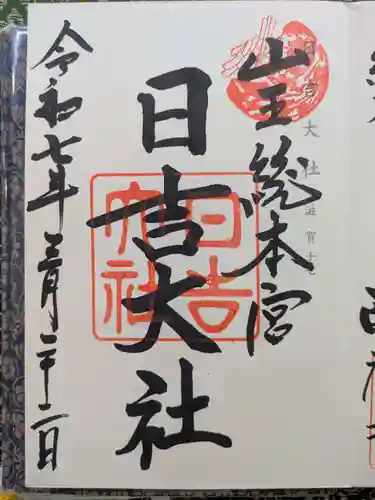 山王総本宮
日吉大社
滋賀
日吉大社
日吉大社
令和七年三月二十二日